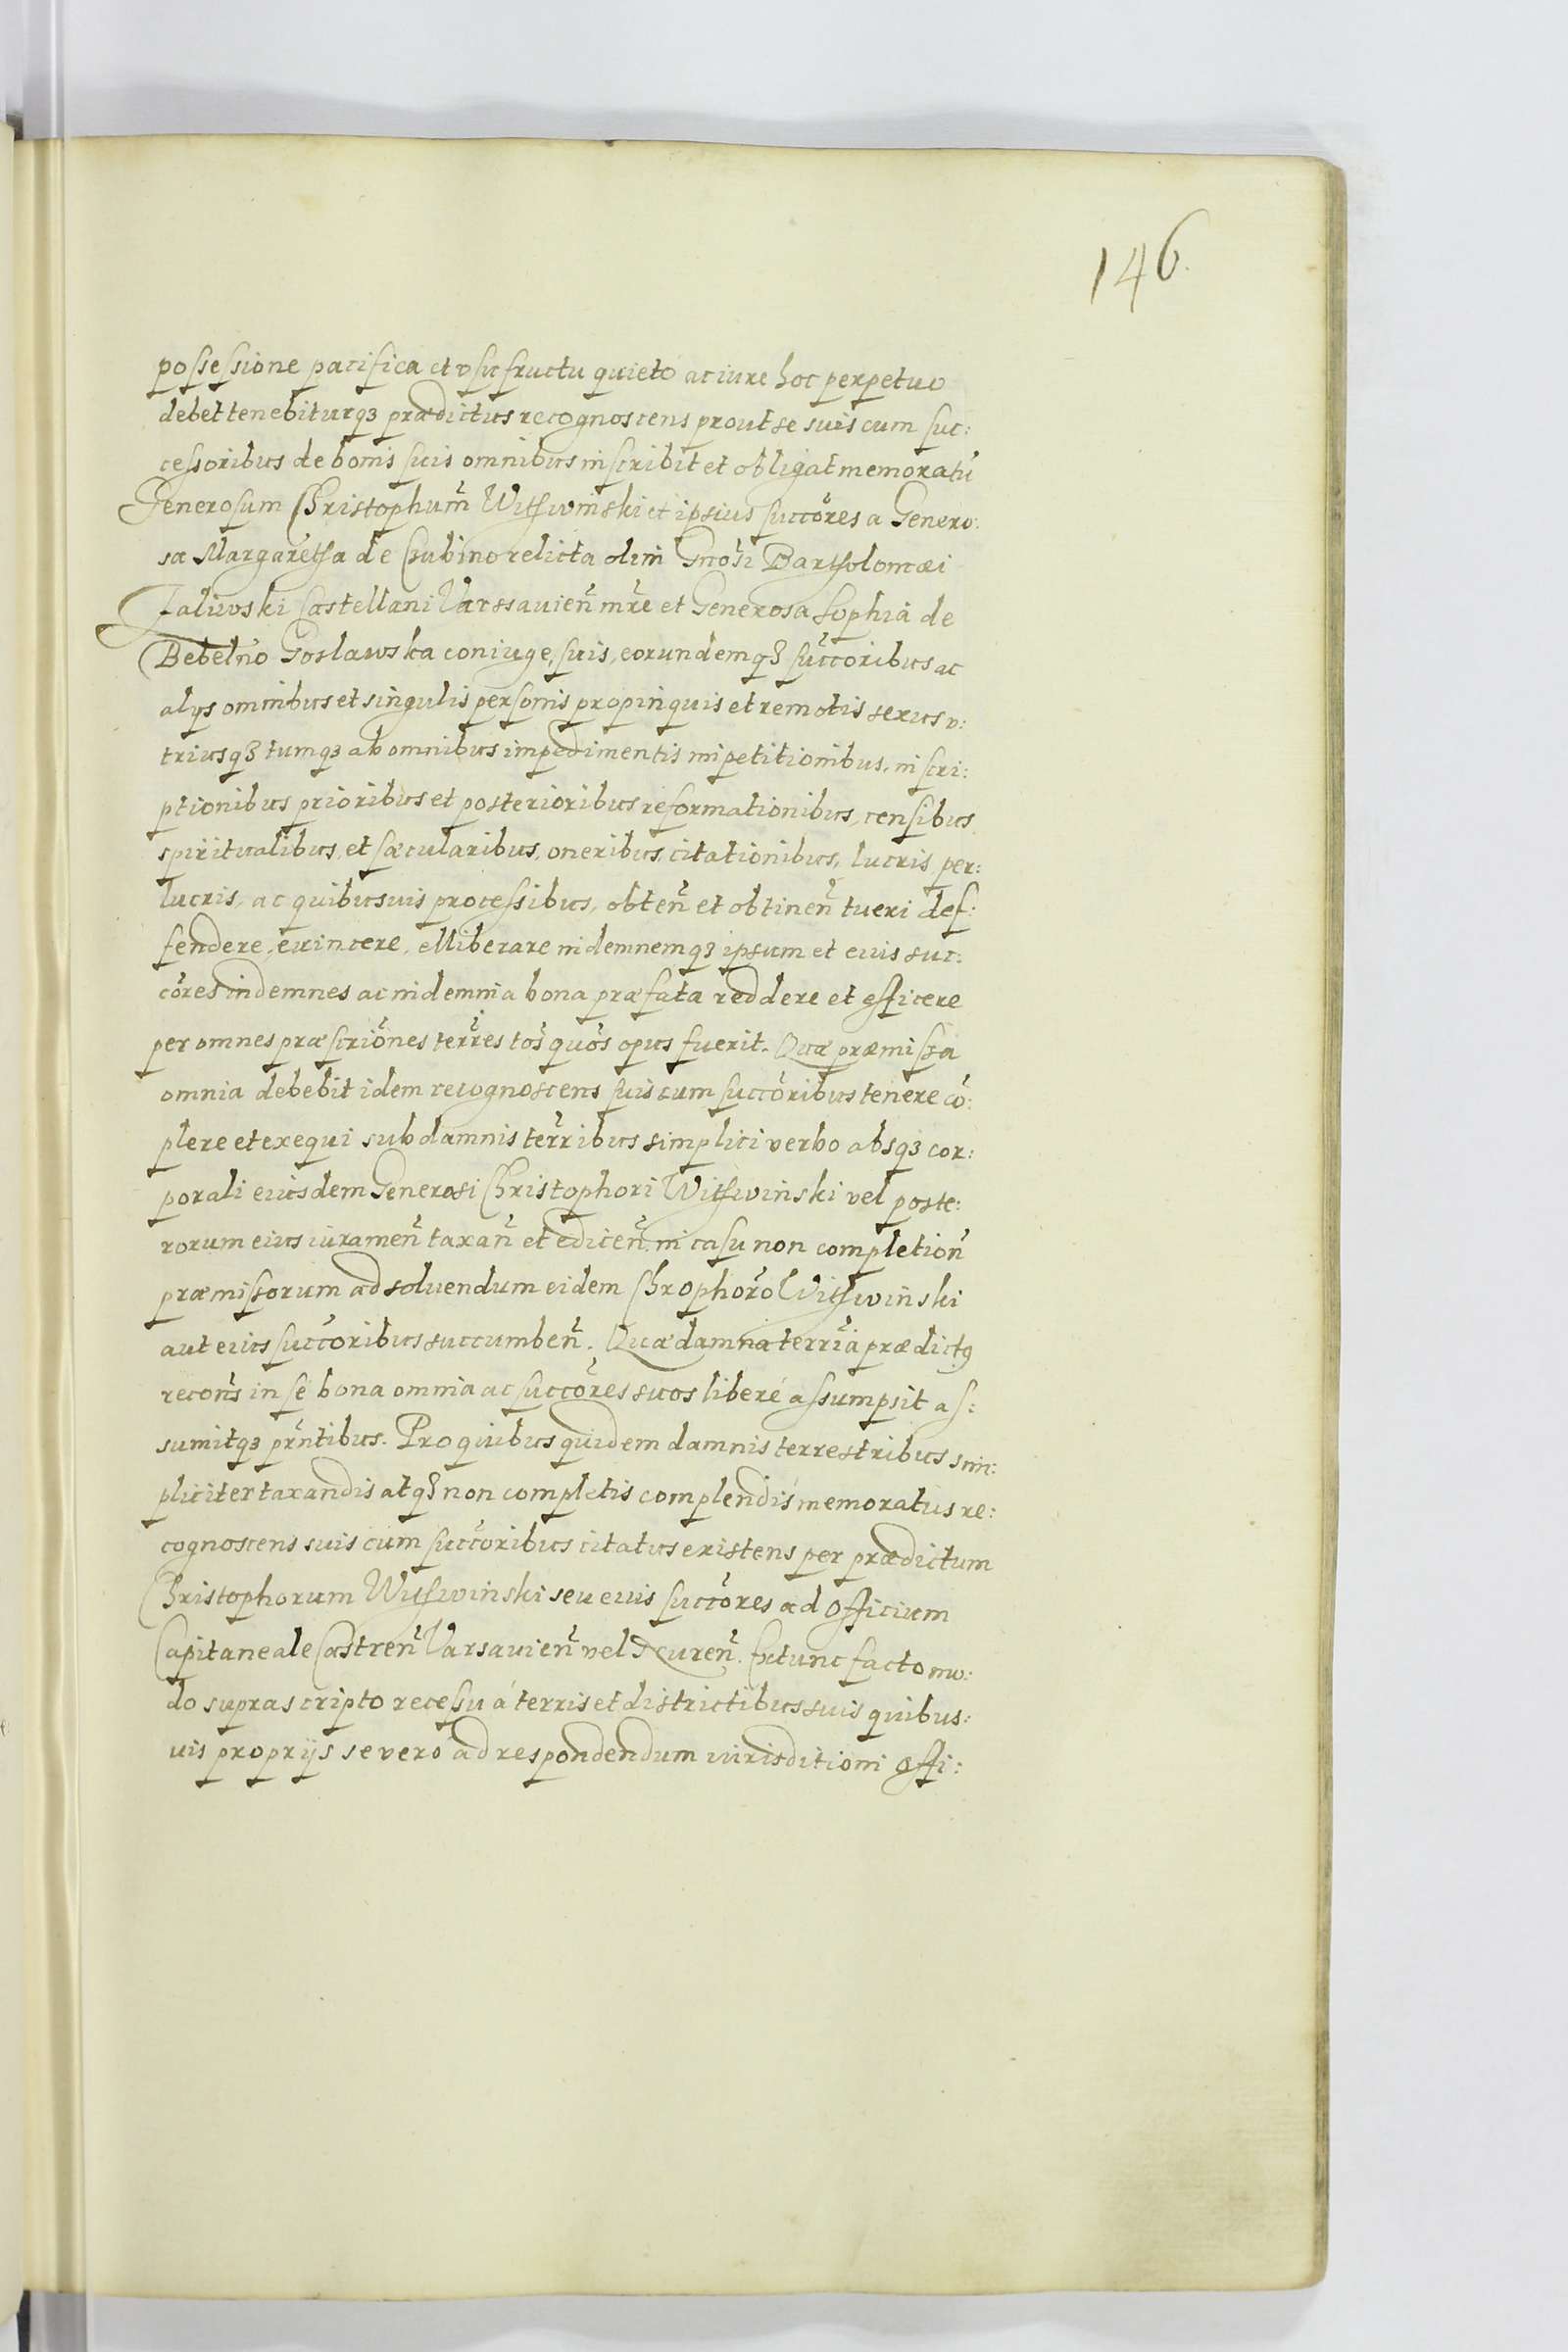 146.
possessione pacifica et vsufructu quieto ac iure hoc perpetuo
debet tenebiturq3 prædictus recognoscens prout se suis cum suc:
cessoribus de bonis suis omnibus inscribit et obligat memoratũ
Generosum Christophum̃ Withwinski et ipsius succõres a Genero:
sa Margaretha de Chubino relicta olim Gnosi Bartholomæi
Zaliwski Castellani Varssauien̄ mr̃e et Generosa Sophia de
Bebelno Goslawska coniuge, suis, eorundemq3 succõribus ac
alijs omnibus et singulis personis propinquis et remotis sexus v:
triusq3 tumq3 ab omnibus impedimentis impetitionibus, inscri:
ptionibus prioribus et posterioribus reformationibus, censibus
spiritualibus, et sæcularibus, oneribus, citationibus, lucris per:
lucris, ac quibusuis processibus, obten̄ et obtinen̄ tueri def:
fendere, euincere, elliberare indemnemq3 ipsum et eius suc:
cõres indemnes ac indemnia bona præfata reddere et efficere
per omnes præscriõnes terr̃es toõ quoõ opus fuerit. Quæ præmissa
omnia debebit idem recognoscens suis cum succõribus tenere cõ:
plere et exequi sub damnis terr̃ibus simplici verbo absq3 cor:
porali eiusdem Generosi Christophori Withwinski vel poste:
rorum eius iuramen̄ taxan̄ et edicen̄, in casu non completion̄
præmissorum ad soluendum eidem Chrophoro Withwinski
aut eius succõribus succumben̄. Quæ damna terr̃ia prædictꝯ
recon̄s in se bona omnia ac succõres suos liberé assumpsit as:
sumitq3 pr̃ntibus. Pro quibus quidem damnis terrestribus sim:
pliciter taxandis atq3 non completis complendis memoratus re:
cognoscens suis cum succõribus citatus existens per prædictum
Christophorum Withwinski seu eius succõres ad officium
Capitaneale Castren̄ Varsauien̄ vel Decuren̄. Extunc facto mo:
do suprascripto recessu á terris et districtibus suis quibus:
uis proprijs se veró ad respondendum iurisditioni offi: